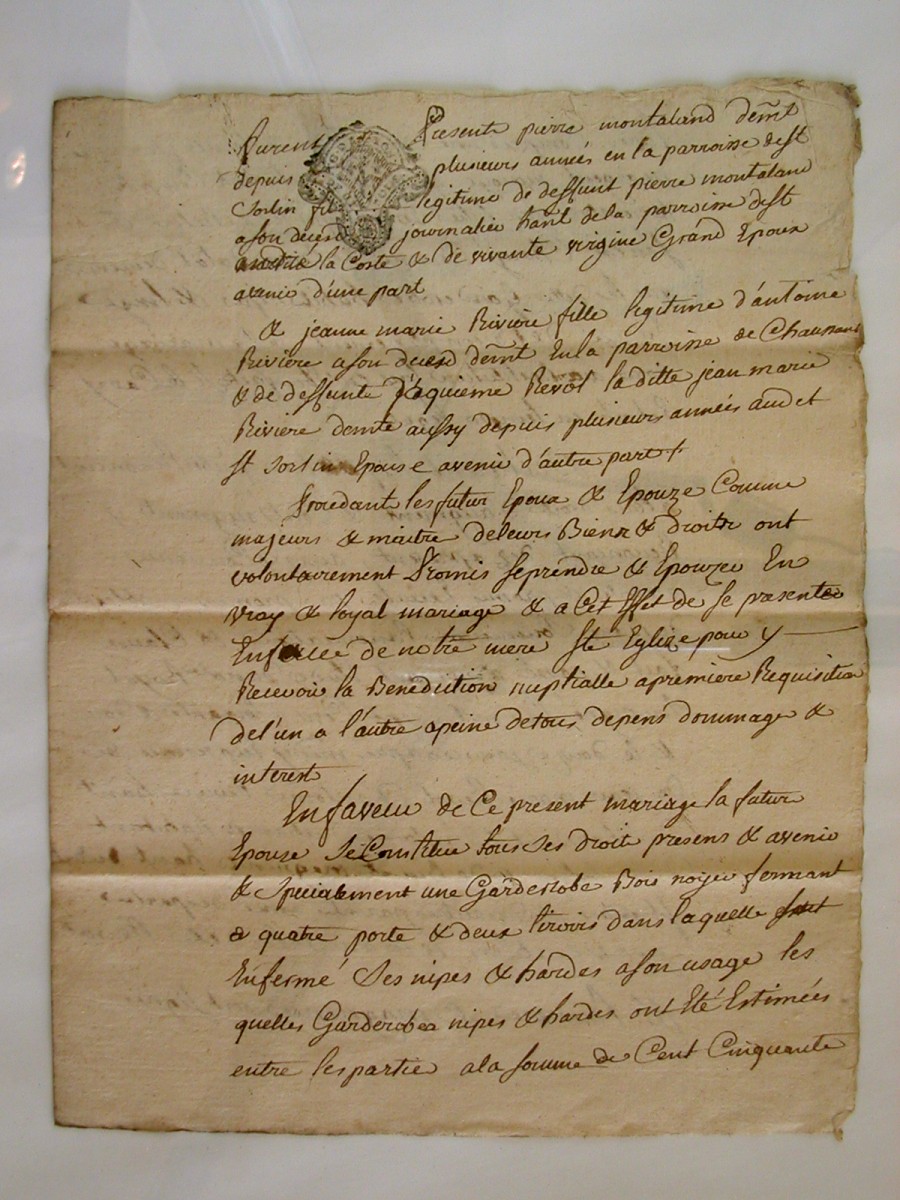 furent Presents pierre montaland demt
depuis plusieurs années en la parroisse de st
Sorlin fils legitime de deffunt pierre montaland
a son deces journalier hant de la parroisse de st
la Coste & de vivante virgine Grand Epoux
avenir d'une part
& jeanne marie Riviere fille legitime d'antoine
Riviere a son deces demt En la parroisse de Chaussans
& de deffunte Revol la ditte jean marie
Riviere demte aussy depuis plusieurs années aud et
st sorlin Epouse avenir d'autre part
Procedant les futur Epoux & Epouze Comme
majeurs & maitre de leurs Biens & droits ont
volontairement Promis se prendre & Epouzer En
vray & loyal mariage & a Cet Effet de se presenter
En face de notre mere ste Eglize pour y
Recevoir la Benediction nuptialle a premiere Requisition
de l'un a l'autre a peine de tous depens dommage &
interest
En faveur de Ce present mariage la future
Epouze se Constitue tous ses droit presens & avenir
& specialement une Garderobe Bois noyer fermant
a quatre porte & deux tiroirs dans laquelle
Enfermé ses nipes & hardes a son usage les
quelles Garderobes nipes & hardes ont Eté Estimées
entre les partie a la somme de Cent Cinquante